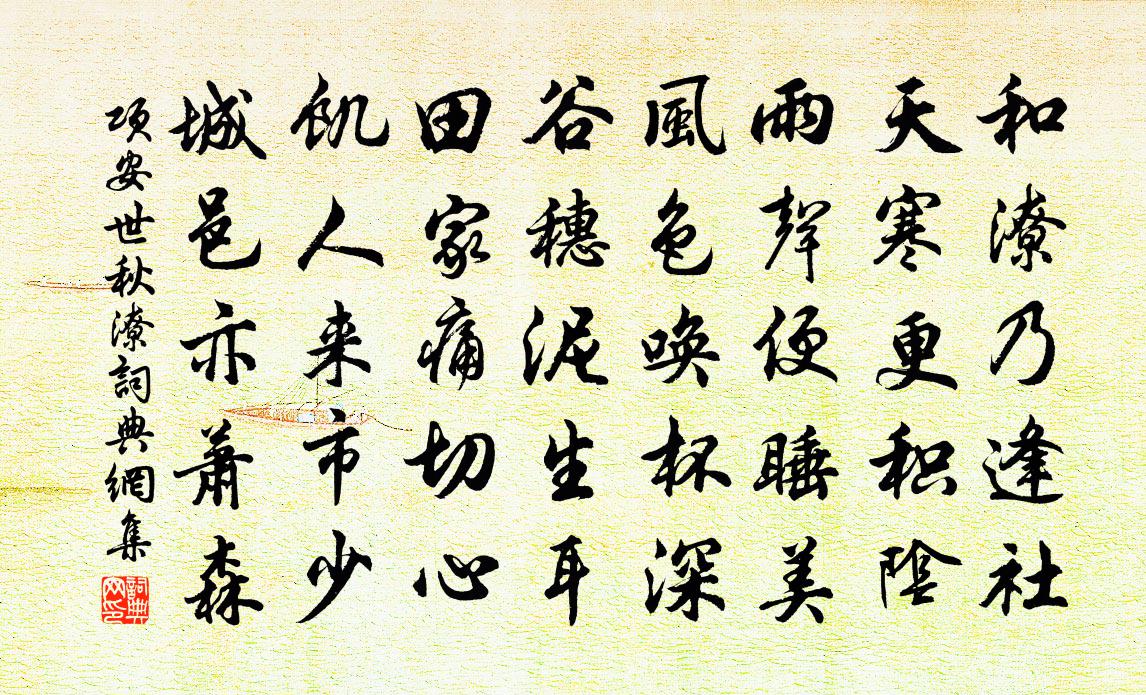 和潦乃逢社
天寒更积陰
雨聲便睡美
風色喚杯深
谷穗泥生耳
田家痛切心
飢人来市少
城邑亦蕭森
項安世秋潦詞典網集
詞典網印